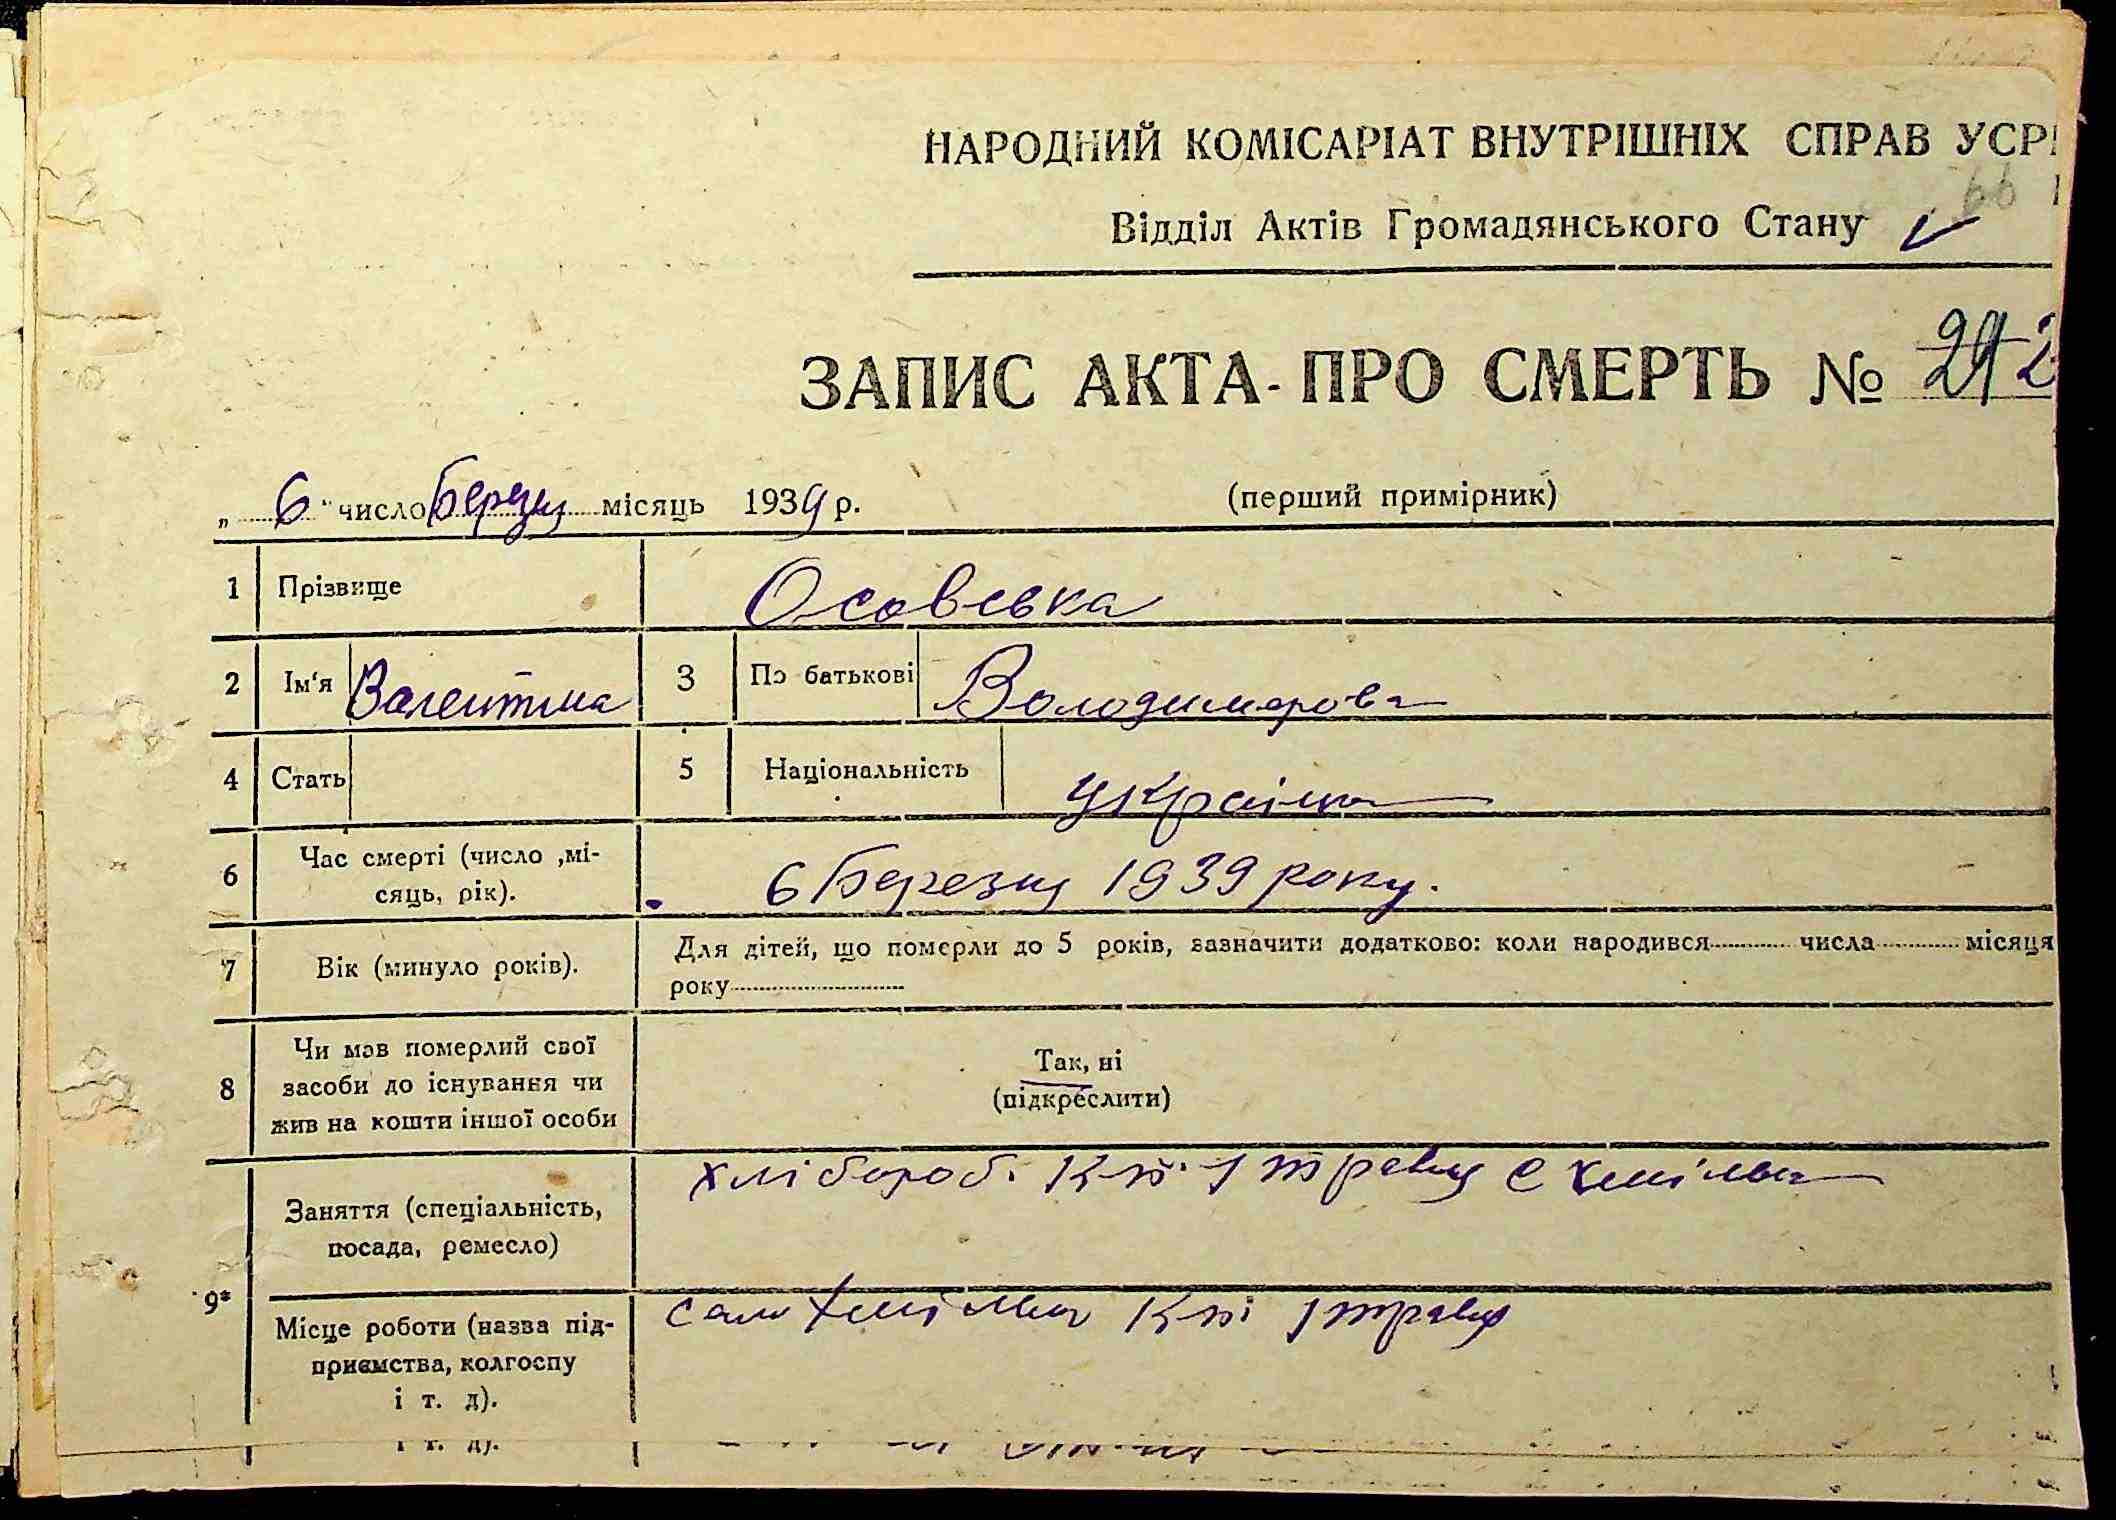 НАРОДНИЙ КОМІСАРІАТ ВНУТРІШНІХ СПРАВ УСР
66
Відділ Актів Громадянського Стану
ЗАПИС АКТА- ПРО СМЕРТЬ №
„ 6 " число березня місяць 1939 р.
(перший примірник)
1 Прізвище Осовська
2 Ім'я Валентина 3 По батькові Володимирова
4 Стать 5 Національність українка
6 Час смерті (число ,мі-
сяць, рік). 6 Березня 1939 року.
7 Вік (минуло років). Для дітей, що померли до 5 років, зазначити додатково: коли народився числа місяця
року
8 Чи мав померлий свої
засоби до існування чи
жив на кошти іншої особи
Так, ні
(підкреслити)
9*
Заняття (спеціальність,
посада, ремесло)
хлібороб. К-п 1 травня с Хмільна
Місце роботи (назва під-
приємства, колгоспу
і т. д).
село Хмільна К-п 1 травня
і т. д).